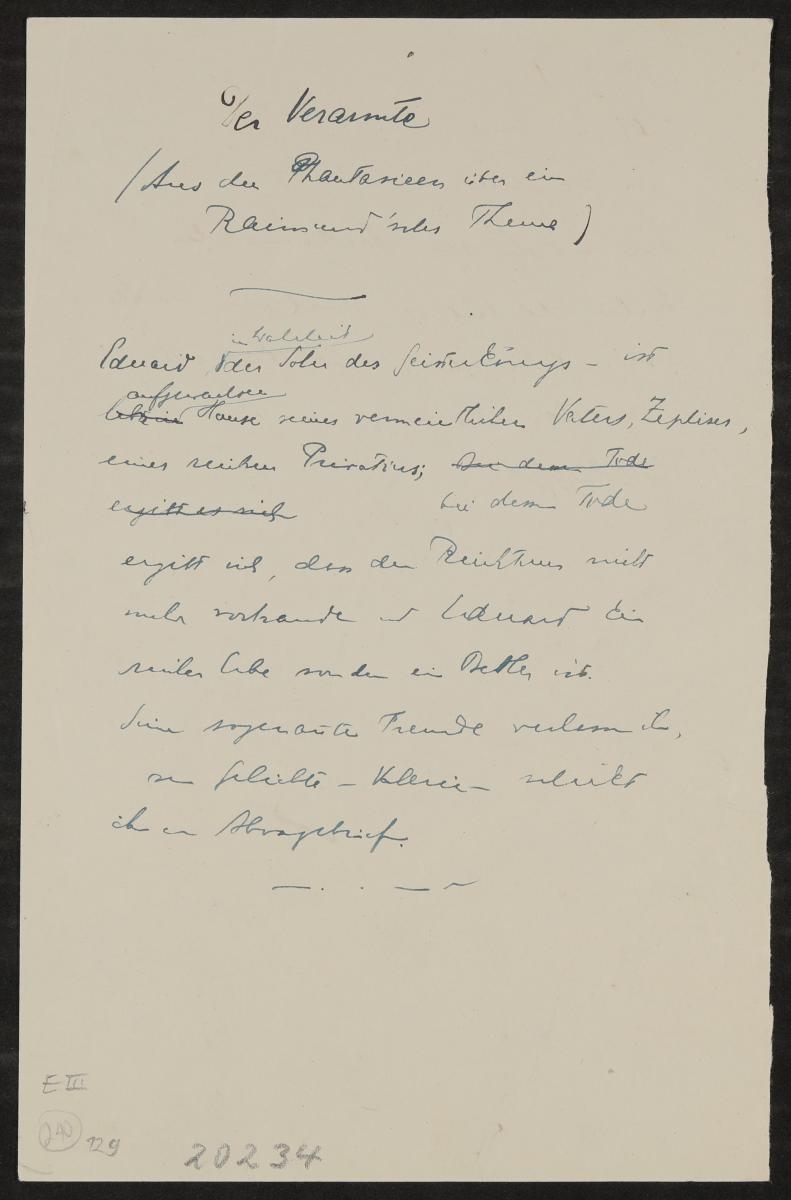 Der Verarmte
(Aus den Phantasieen über ein
Raimund'sches Thema)
in Wahrheit
Eduard, der Sohn des Geisterkönigs – ist
aufgewachsen
lebt im Hause seines vermeintlichen Vaters, Zephises,
eines reichen Privatiers; bei dessen Tode
ergibt es sich bei dessen Tode
ergibt sich, dass der Reichtum nicht
mehr vorhanden und Eduard kein
reicher Erbe sondern ein Bettler ist.
Seine sogenannten Freunde verlassen ihn,
seine Geliebte – – schickt
ihm einen Absagebrief.
E III
240 129
20234